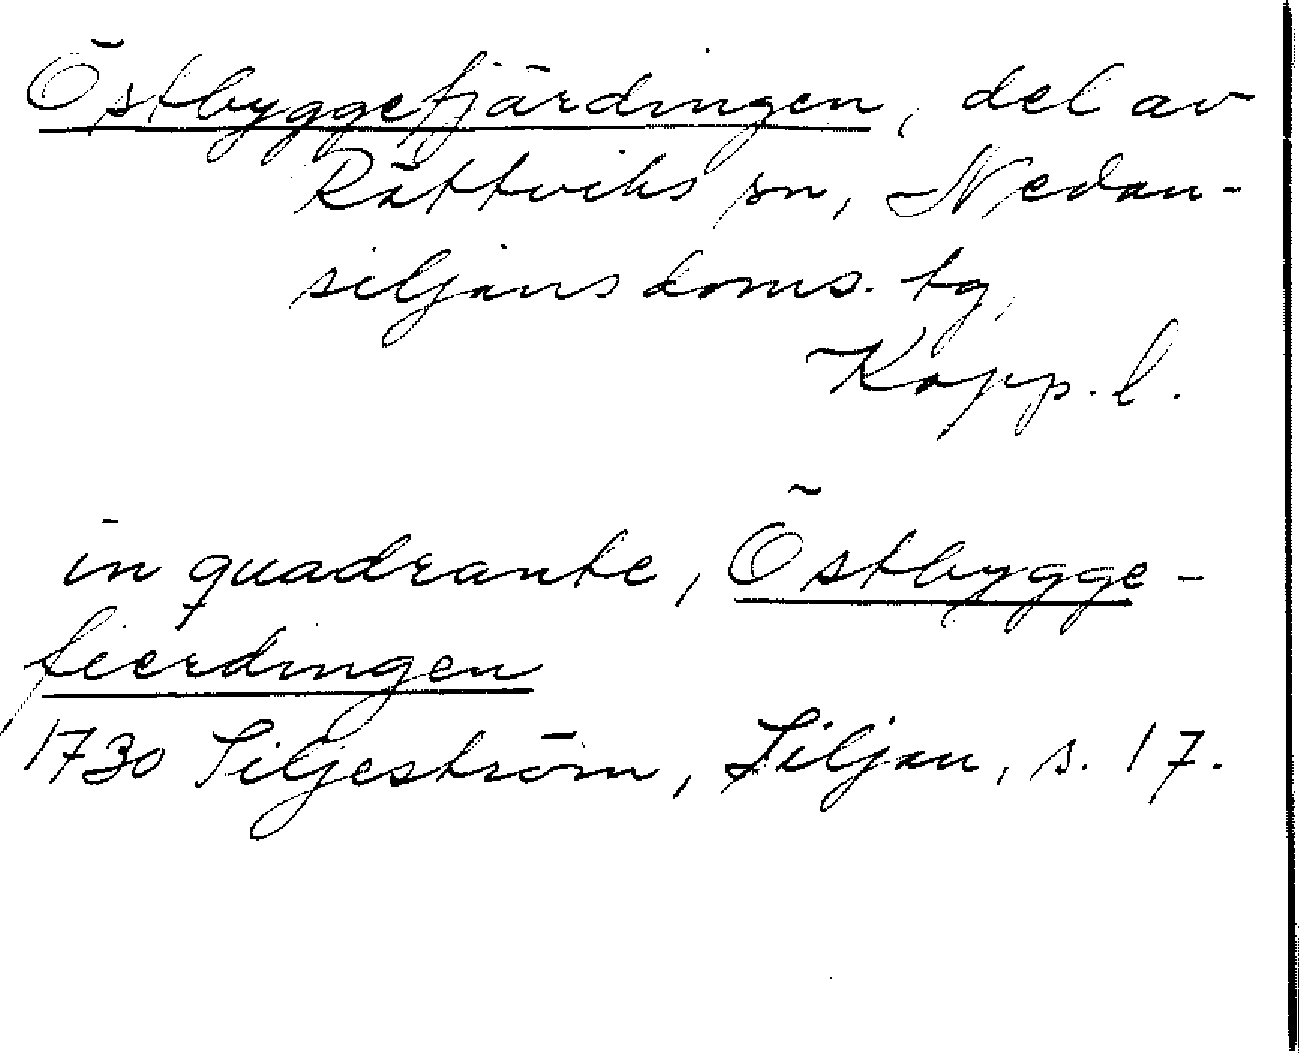 Östbyggefjärdingen, del av
Rättviks sn, Nedan-
siljans doms. tg,
Kopp. l.
in quadrante, Östbygge-
fierdingen
1730 Siljeström, Siljan, s. 17.